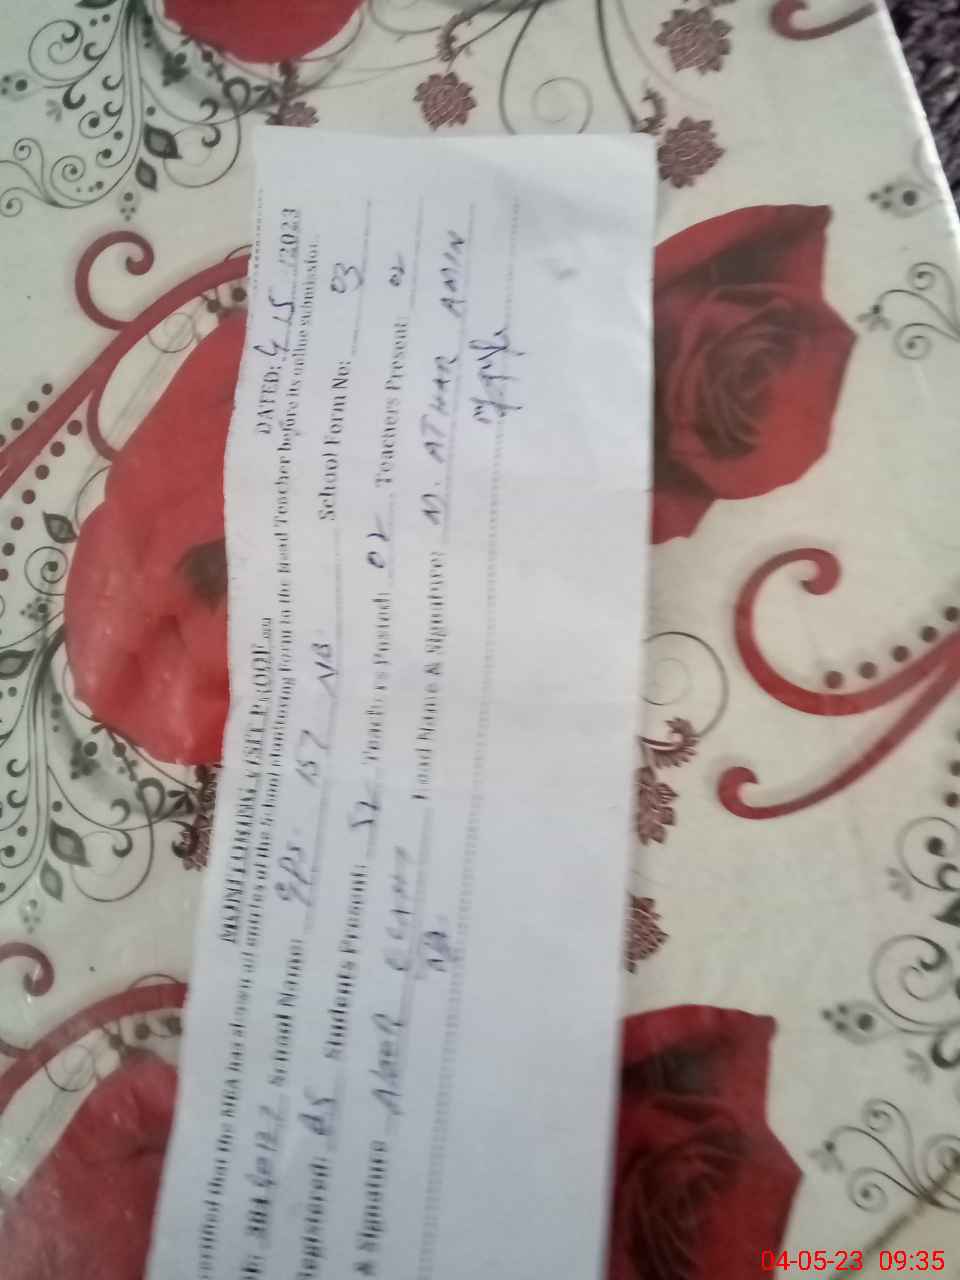 DATED: 4/5/2023
MONITORING VISIT PROOF
certified that the MEA has shown all entries of the School Monitoring Form to the Head Teacher before its online submission.
School Name: GPS. 157 NB School Form No: 03
Registered: 85 Students Present: 52 Teachers Posted: 02 Teachers Present: 02
& Signature Head Name & Signature: M. ATHAR AMIN
04-05-23 09:35